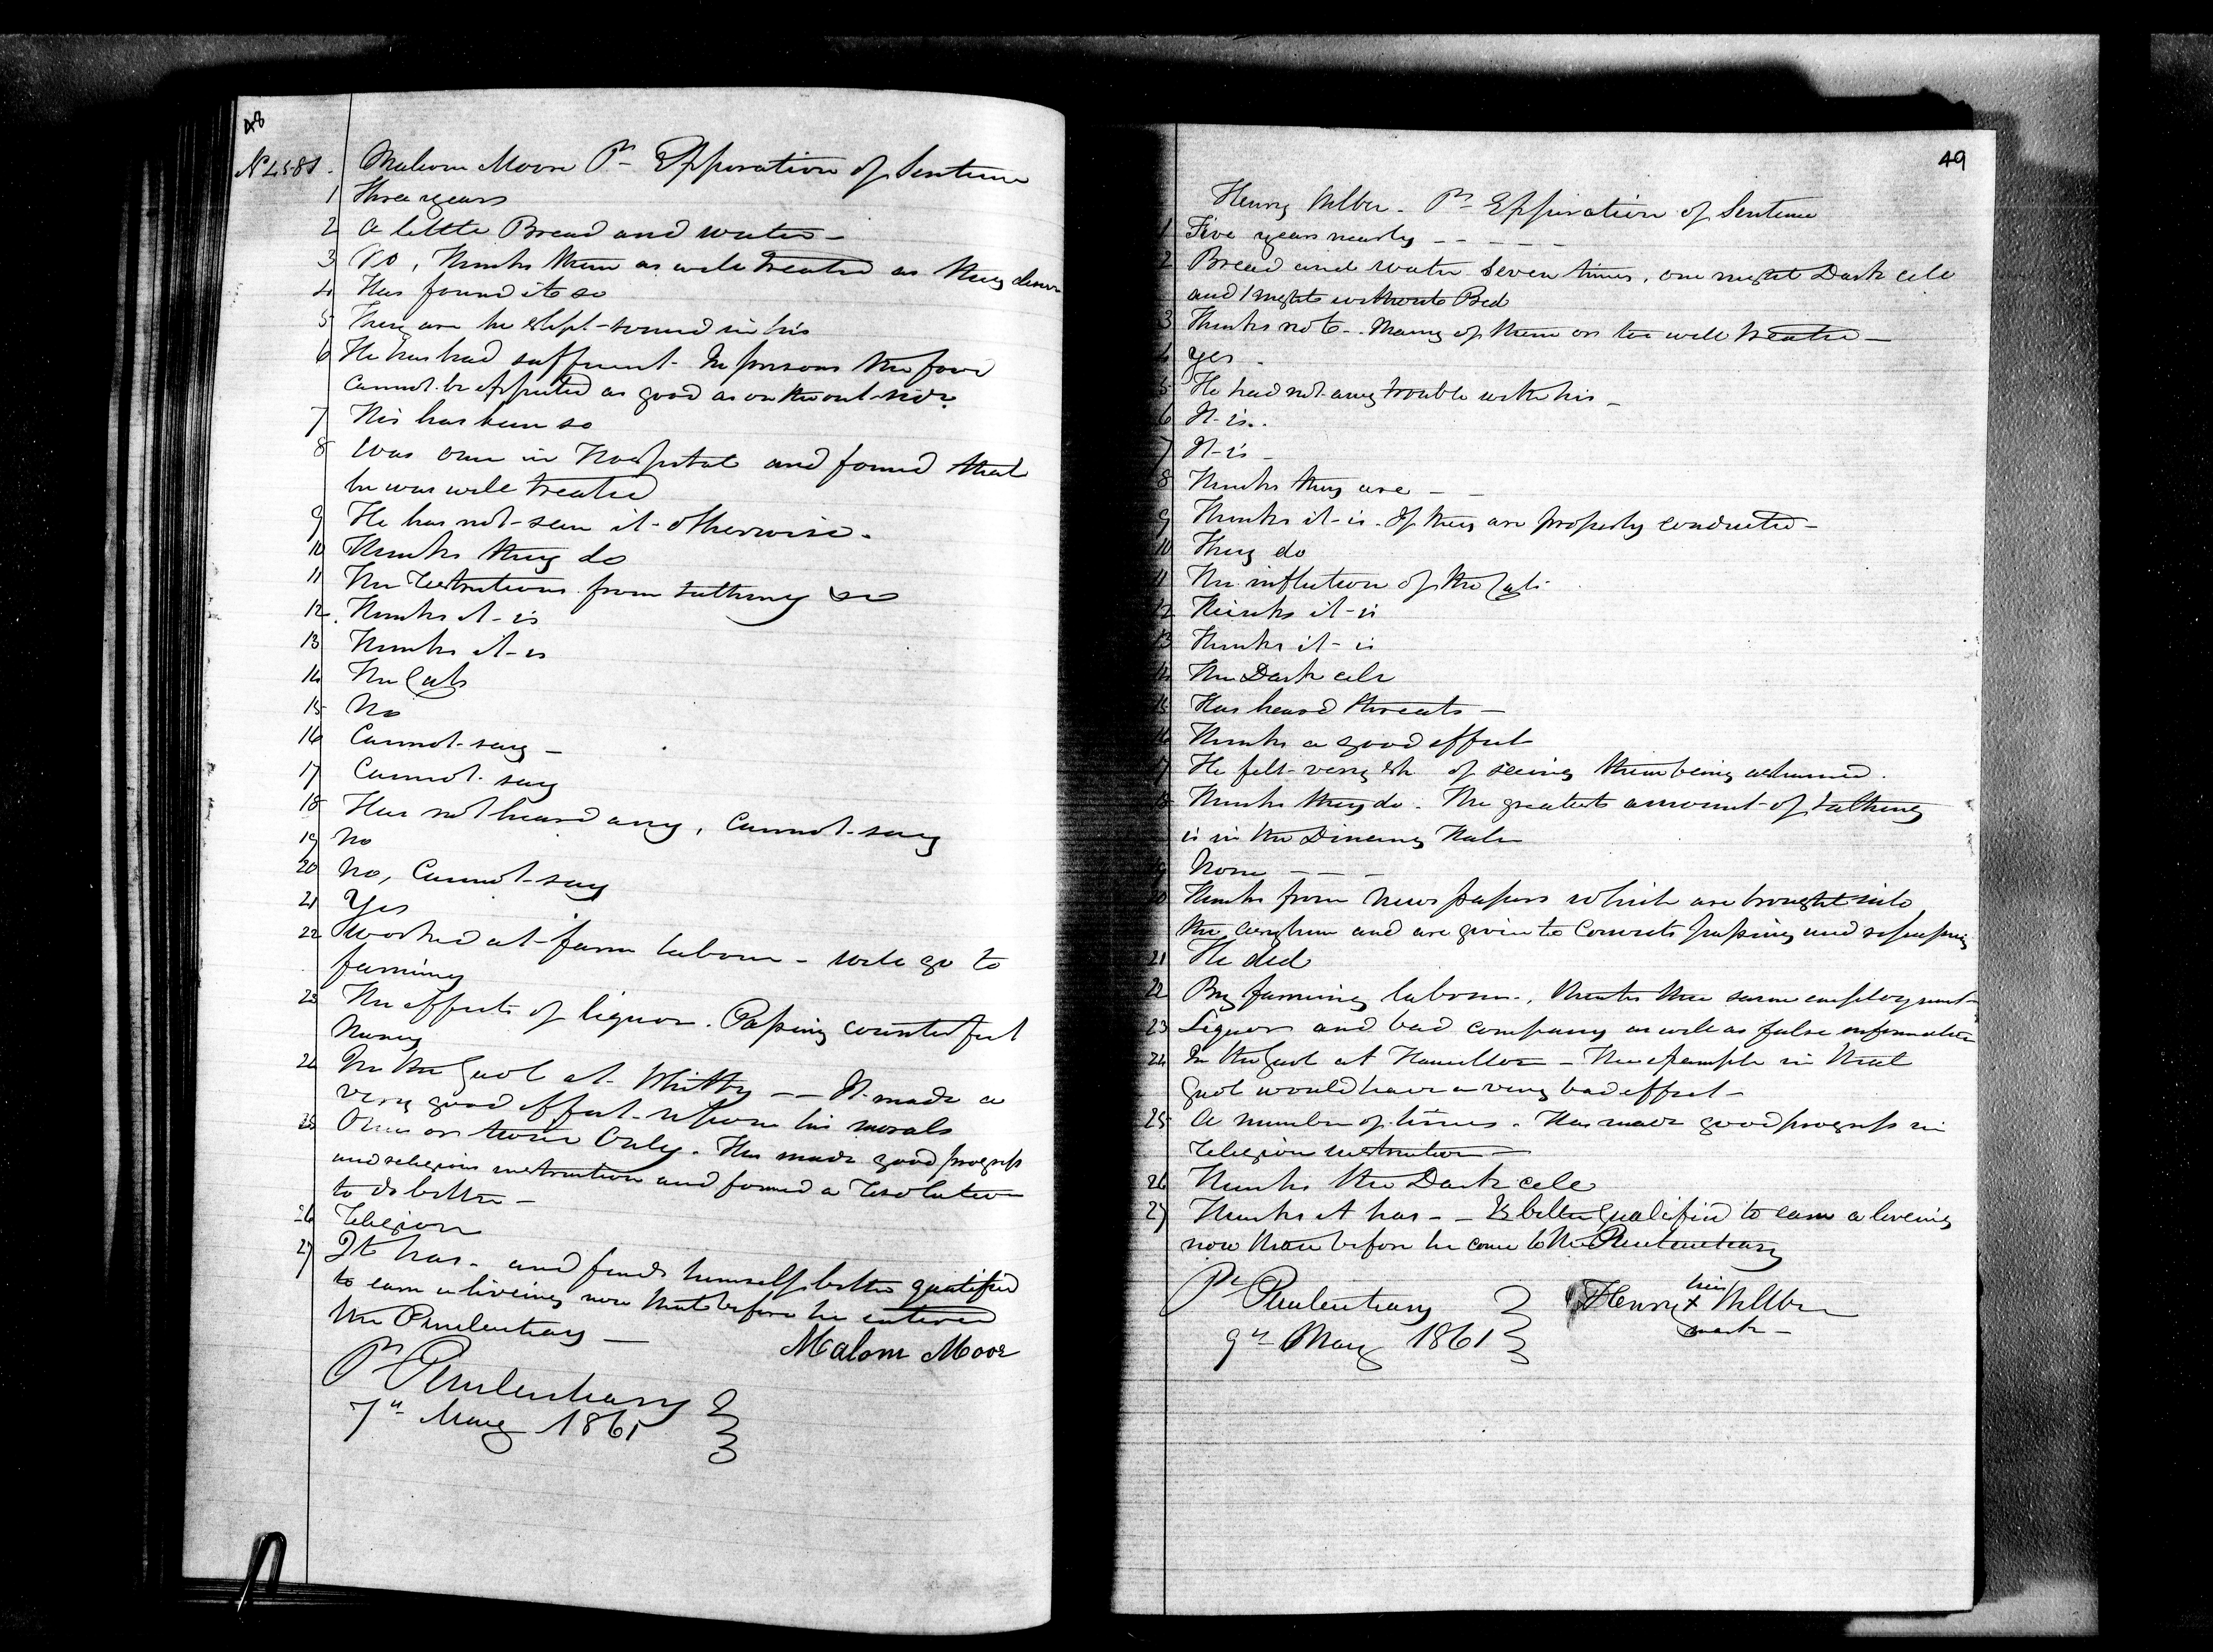 48
Malcom Moore Pr Expiration of Sentence
1 Three years
2 A little Bread and water –
3 No, Thinks them as well treated as they deserve
4 Has found it so
5 They are he slept sound in his
6 He has had sufficient. In prisons the food
cannot be expected as good as on the out-side
7 His has been so
8 Was once in Hospital and found that
he was well treated
9 He has not seen it otherwise.
10 Thinks they do
11 The restrictions from talking
12 Thinks it is
13 Thinks it is
14 The Cats
15 No
16 Cannot say –
17 Cannot say
18 Has not heard any, Cannot say
19 No
20 No, Cannot say
21 Yes
22 Worked at farm labour – will go to
farming
23 The effects of liquor. Passing counterfeit
Money
24 In the Gaol at Whitby – – It made a
very good effect upon his morals
25 Once or twice Only. Has made good progress
and religious instruction and formed a resolution
to do better –
26 Religion
27 It has. and finds himself better qualified
to earn a liveing now that before he entered
the Penitentiary –
Malom Moor
Pl Penitentiary
7th May 1861
49
Henry Wilber. Pr Expiration of Sentence
1 Five years nearly – – – – –
2 Bread and water seven times, one night Dark cell
and 1 nights without Bed
3 Thinks not – Many of them are too well treated –
4 Yes –
5 He had not any trouble with his –
6 It is..
7 It is –
8 Thinks they are – –
9 Thinks it is. If they are properly conducted –
10 They do
11 The infliction of the Cats
12 Thinks it is
13 Thinks it is
14 The Dark cell
15 Has heard threats –
16 Thinks a good effect
17 He felt very of seeing them being ashamed.
18 Thinks they do. The greatest amount of talking
is in the Dineing Hall
19 None – – –
20 Thinks from News papers which are brought into
the asylum and are given to Convicts passing and repassing
21 He did
22 By farming labour., thinks the same employment
23 Liquor and bad company as well as false information
24 In the Gaol at Hamilton – The example in that
Gaol would have a very bad effect –
25 A number of times. Has made good progress in
religion instruction –
26 Thinks the Dark cell
27 Thinks it has – – Is better qualified to earn a liveing
now than before he come to the Penitentiary
Pl Penitentiary
9th May 1861
his
Henry x Willber
mark –